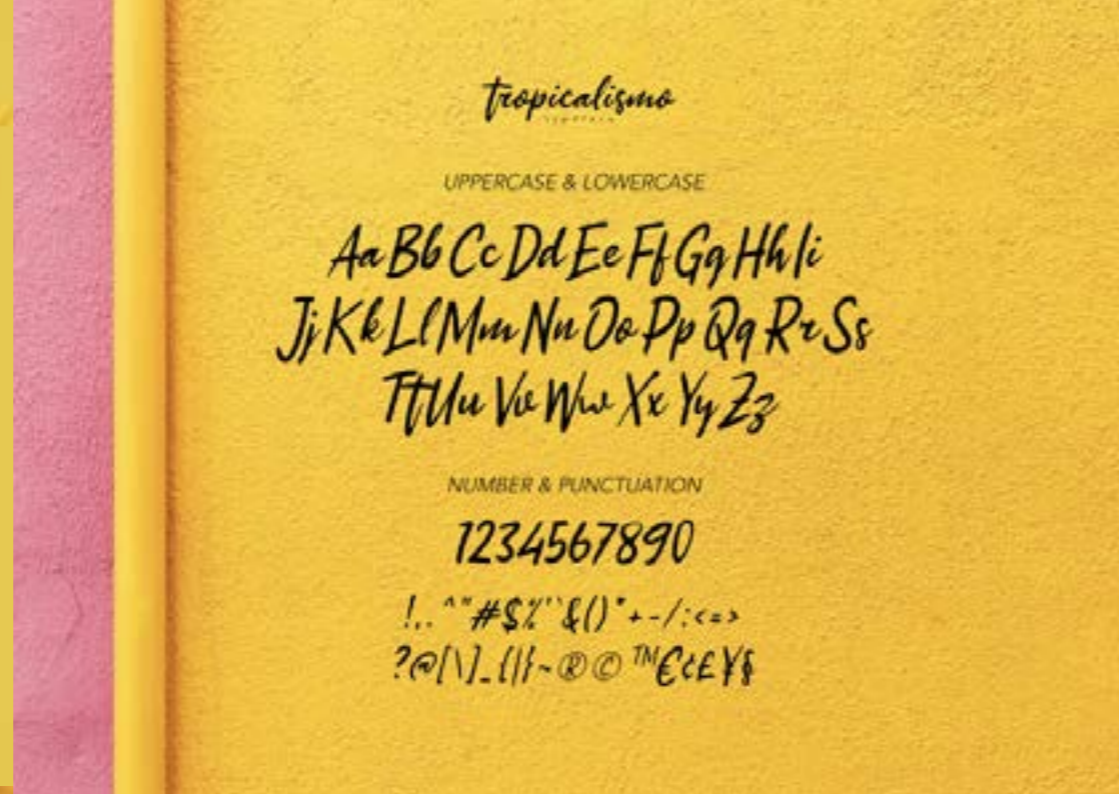 tropicalismo
UPPERCASE & LOWERCASE
Aa Bb Cc Dd Ee Ff Gg Hh Ii
Jj Kk Ll Mm Nn Oo Pp Qq Rr Ss
Tt Uu Vv Ww Xx Yy Zz
NUMBER & PUNCTUATION
1234567890
!,. ^"#$%'`&()*+-/:<=>
?@[\]_{|}~®© ™€¢£¥§